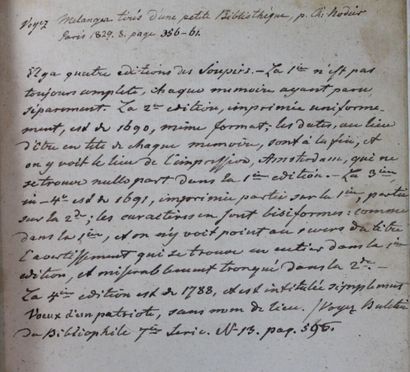 Voyez Mélanges tirés d'une petite Bibliothèque, p. Ch. Nodier
Paris 1829. 8. page 356-61.
Il y a quatre editions des Soupirs. - La 1ère n'est pas
toujours complete, chaque memoire ayant paru
séparément. La 2de edition, imprimée uniforme-
ment, est de 1690, même format; les dates, au lieu
d'être en tête de chaque memoire, sont à la fin; et
on y voit le lieu de l'impression, Amsterdam, qui ne
se trouve nulle part dans la 1ère edition. - La 3ème
in-4° est de 1691, imprimée partie sur la 1ère, partie
sur la 2de; les caractères en sont bisiformes: comme
dans la 1ère, et on n'y voit point au revers du titre
l'avertissement qui se trouve en entier dans la 1ère
edition, et misérablement tronqué dans la 2de. -
La 4ème edition est de 1788, et est intitulée simplement
Voeux d'un patriote, sans nom de lieu. (Voyez Bulletin
du Bibliophile 7ème Serie. N° 13. pag. 596.